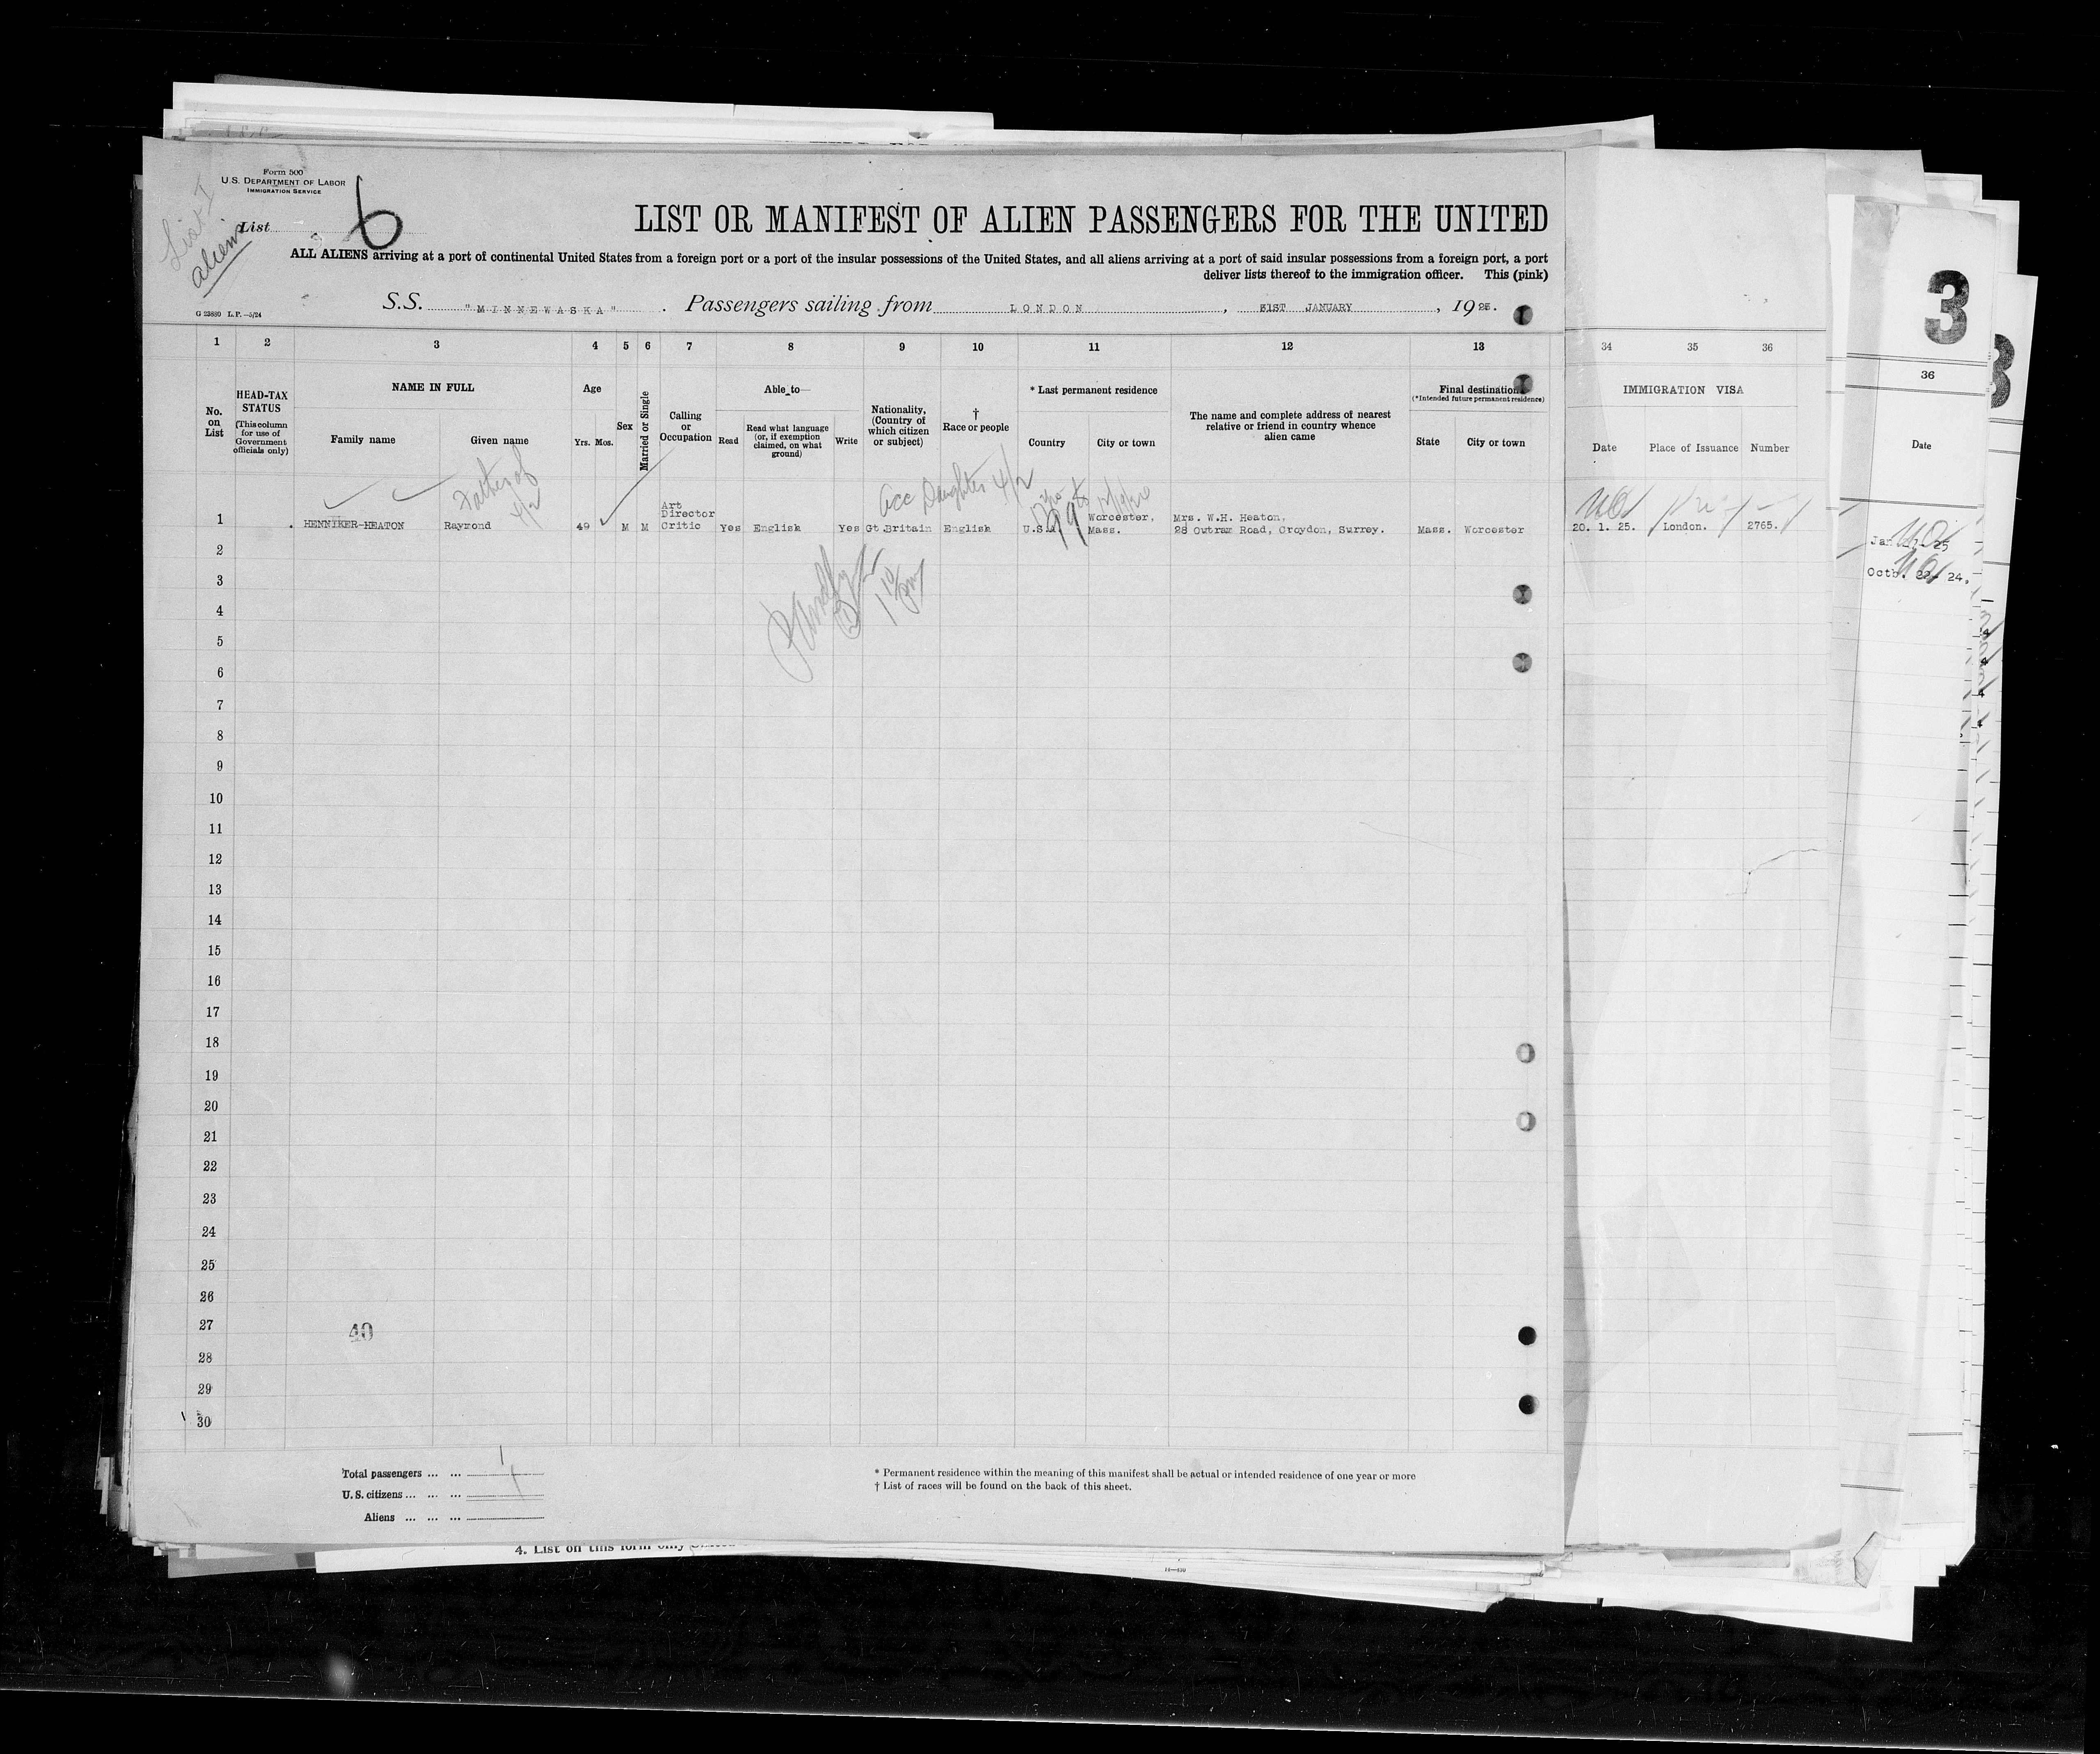 Form 500
U.S. DEPARTMENT OF LABOR
IMMIGRATION SERVICE
List I
aliens
List 6
LIST OR MANIFEST OF ALIEN PASSENGERS FOR THE UNITED
ALL ALIENS arriving at a port of continental United States from a foreign port or a port of the insular possessions of the United States, and all aliens arriving at a port of said insular possessions from a foreign port, a port
deliver lists thereof to the immigration officer. This (pink)
S.S. "MINNEWASKA". Passengers sailing from LONDON, 31ST JANUARY, 1925.
G 23880 L.P.—5/24
1 2 3 4 5 6 7 8 9 10 11 12 13 34 35 36
No. on List
HEAD-TAX STATUS
(This column for use of Government officials only)
NAME IN FULL
Family name
Given name
Age
Yrs. Mos.
Sex
Married or Single
Calling or Occupation
Able to
Read
Read what language (or, if exemption claimed, on what ground)
Write
Nationality, (Country of which citizen or subject)
† Race or people
* Last permanent residence
Country
City or town
The name and complete address of nearest relative or friend in country whence alien came
Final destination
(*Intended future permanent residence)
State
City or town
IMMIGRATION VISA
Date
Place of Issuance
Number
Father of 4/2
acc Daughter 4/2
1 HENNIKER-HEATON Raymond 49 M M Art Director Critic Yes English Yes Gt Britain English U.S.A. Worcester, Mass. Mrs. W.H. Heaton, 28 Outram Road, Croydon, Surrey. Mass. Worcester 20. 1. 25. London. 2765.
2
3
4
5
6
7
8
9
10
11
12
13
14
15
16
17
18
19
20
21
22
23
24
25
26
27
28
29
30
40
Total passengers ... ... 1
U.S. citizens ... ... ...
Aliens ... ... ...
* Permanent residence within the meaning of this manifest shall be actual or intended residence of one year or more
† List of races will be found on the back of this sheet.
4. List on this form only
3
36
Date
Octb. 22 24.
3